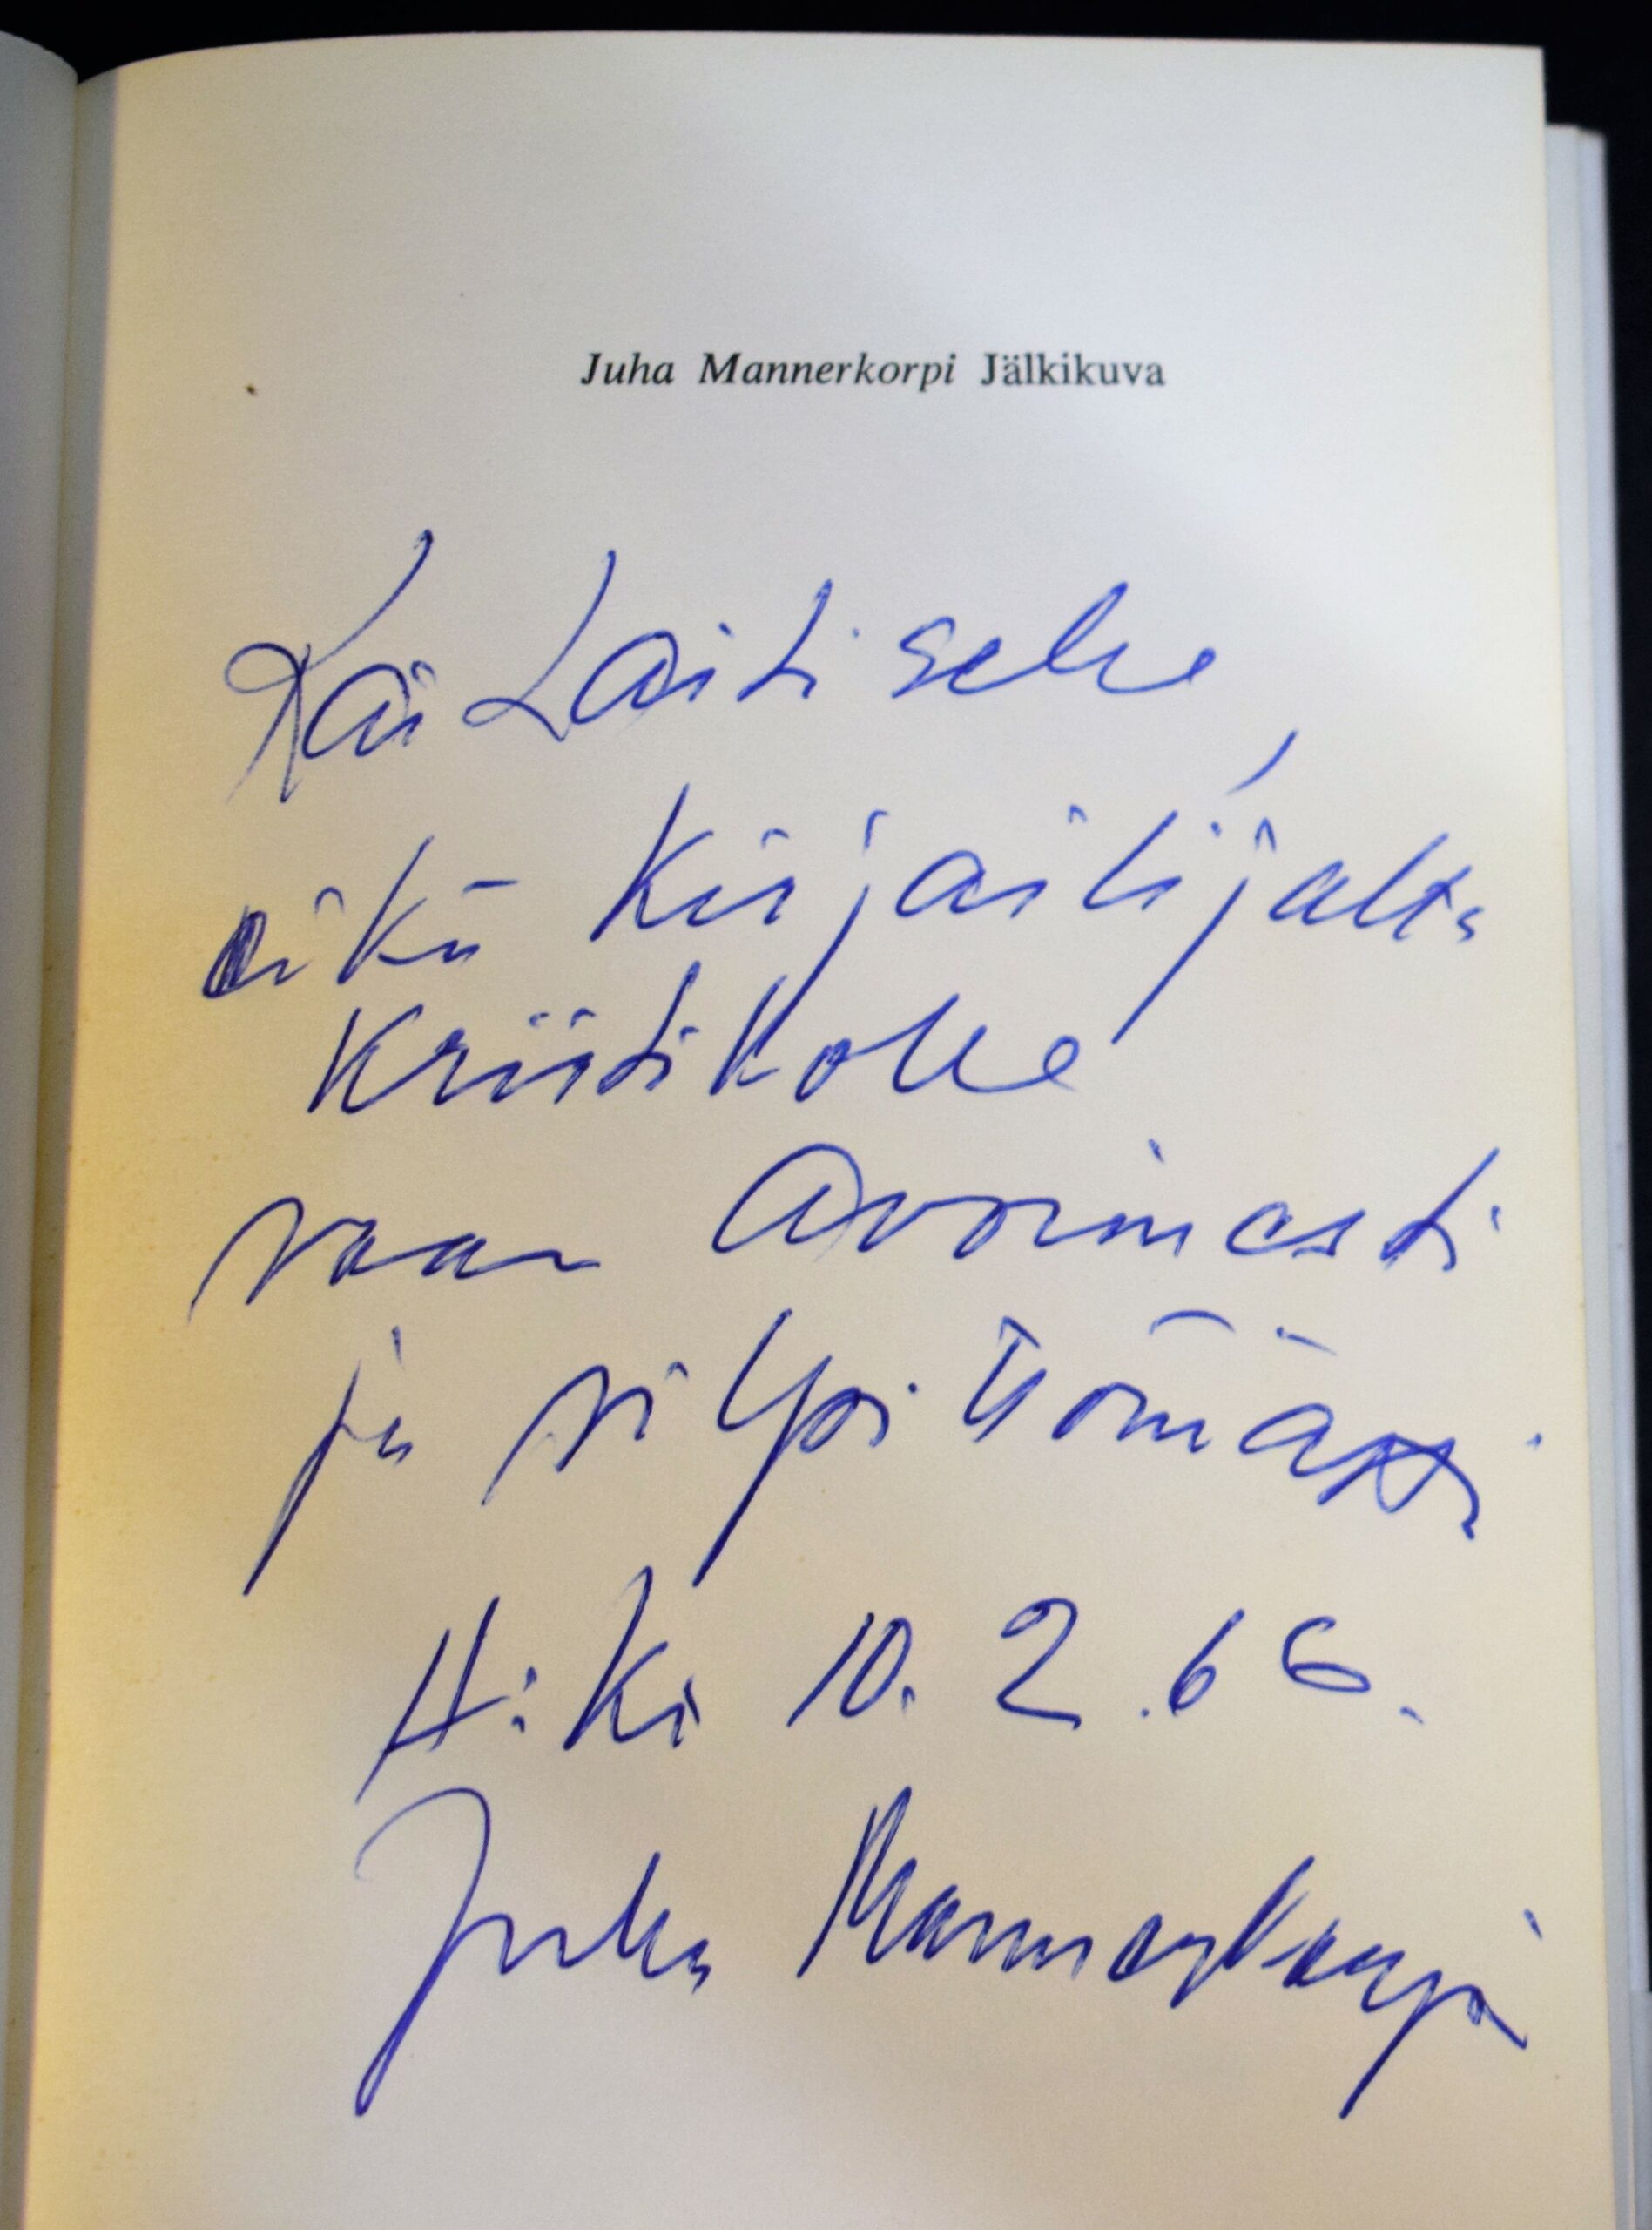 Juha Mannerkorpi Jälkikuva
Kai Laitiselle,
eikä kirjailijalta
kriitikolle
vaan avoimesti
ja vilpittömästi
H:ki 10.2.66.
Juha Mannerkorpi